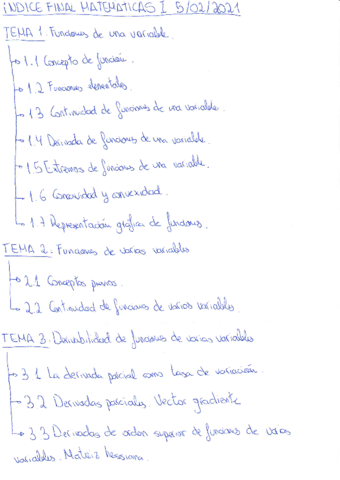 ÍNDICE FINAL MATEMATICAS I 5/02/2021
TEMA 1. Funciones de una variable.
1.1 Concepto de función.
1.2 Funciones elementales.
1.3 Continuidad de funciones de una variable.
1.4 Derivada de funciones de una variable.
1.5 Extremos de funciones de una variable.
1.6 Concavidad y convexidad.
1.7 Representación gráfica de funciones.
TEMA 2: Funciones de varias variables
2.1 Conceptos previos.
2.2 Continuidad de funciones de varias variables.
TEMA 3: Derivabilidad de funciones de varias variables
3.1 La derivada parcial como tasa de variación.
3.2 Derivadas parciales. Vector gradiente
3.3 Derivadas de orden superior de funciones de varias
variables. Matriz hessiana.